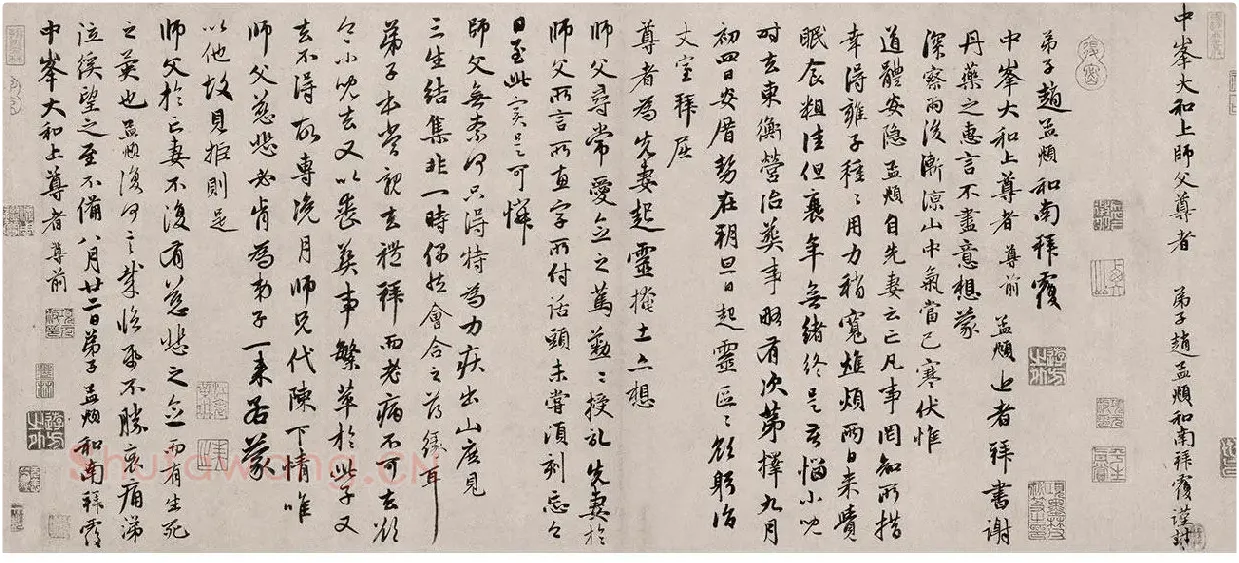 中峯大和上師父尊者 弟子趙孟頫和南拜覆謹封
弟子趙孟頫和南拜覆
中峯大和上尊者尊前 孟頫近者拜書謝
丹藥之惠言不盡意想蒙
深察雨後漸涼山中氣當已寒伏惟
道體安隱孟頫自先妻云亡凡事罔知所措
幸得雍子種々用力稍寬燋煩兩日來
眠食粗佳但衰年無緒終是苦惱小兒
時去東衡營治葬事略有次第擇九月
初四日安厝輒在朔旦日起靈區々欲躬詣
丈室拜屈
尊者為先妻起靈掩土亦想
師父尋常愛念之篤懃々授記先妻於
師父所言所直字所付話頭未嘗頃刻忘之
日至此實是可憐
師父無柰何只得特為力疾出山庶見
三生結集非一時偶然會合之薄緣耳
弟子本當親去禮拜而老病不可去欲
令小兒去又以喪葬事繁萃於此子又
去不得所專浼月師兄代陳下情唯
師父慈悲必肯為弟子一来若蒙
以他故見拒則是
師父於亡妻不復有慈悲之念而有生死
之異也孟頫復何言哉臨紙不勝哀痛涕
泣徯望之至不備八月廿二日弟子孟頫和南拜覆
中峯大和上尊者尊前